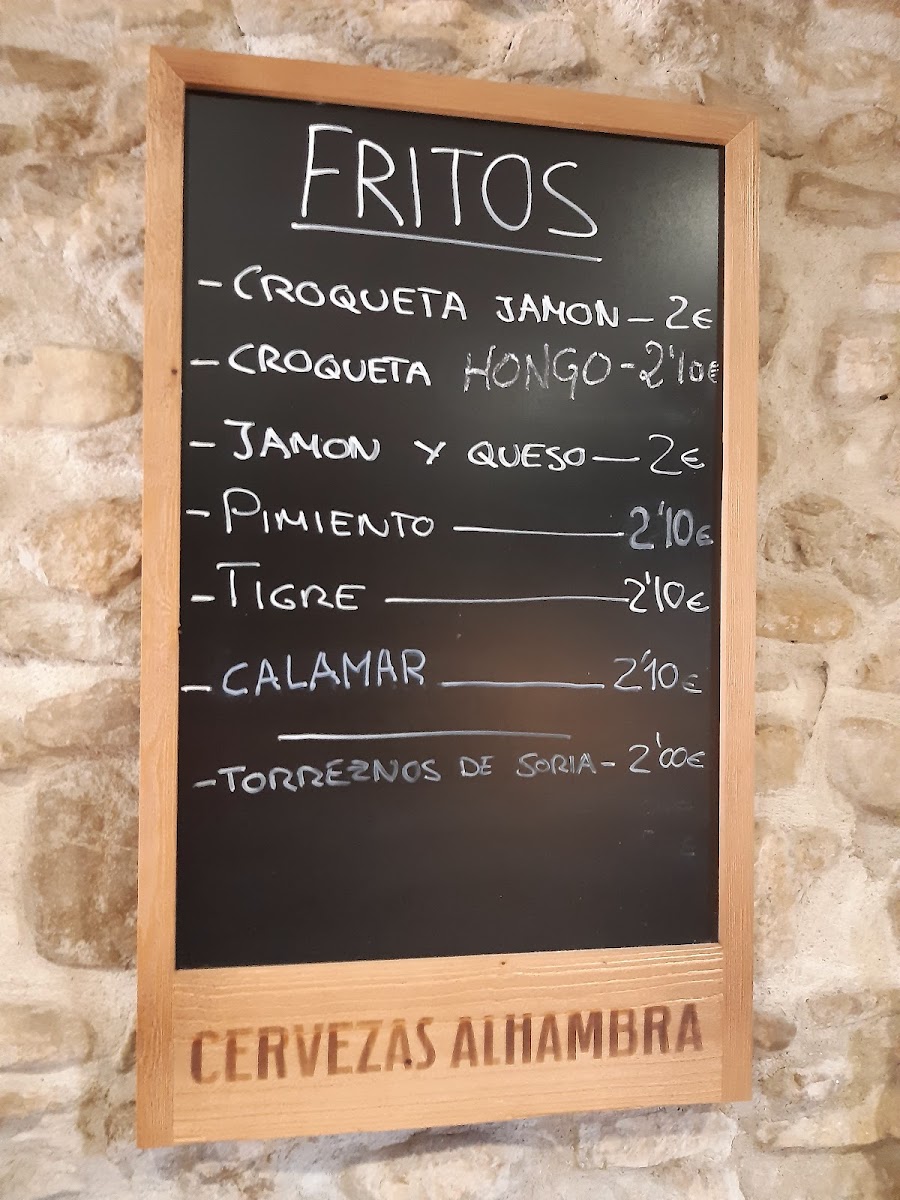 FRITOS
- CROQUETA JAMON - 2€
- CROQUETA HONGO - 2'10€
- JAMON Y QUESO - 2€
- PIMIENTO - 2'10€
- TIGRE - 2'10€
- CALAMAR - 2'10€
- TORREZNOS DE SORIA - 2'00€
CERVEZAS ALHAMBRA